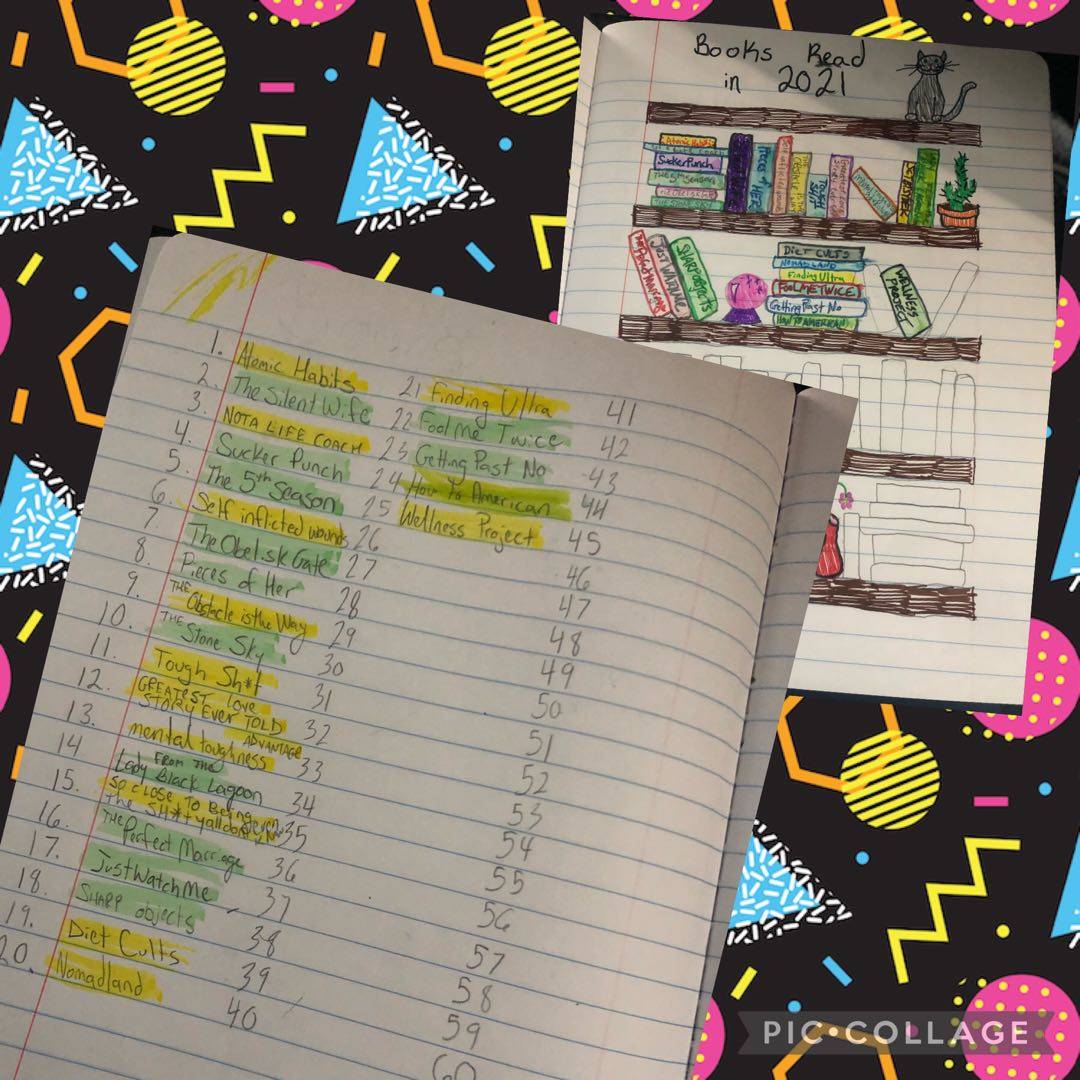 Books Read
in 2021
Sucker Punch
THE 5th SEASON
THE OBELISK GATE
THE STONE SKY
PIECES of HER
TOUGH SH*T
JUST WATCH ME
SHARP OBJECTS
DIET CULTS
NOMADLAND
Finding Ultra
FOOL ME TWICE
Getting Past No
HOW TO AMERICAN
WELLNESS
PROJECT
1. Atomic Habits 21 Finding Ultra 41
2. The Silent Wife 22 Fool me Twice 42
3. NOT A LIFE COACH 23 Getting Past No 43
4. Sucker Punch 24 How to American 44
5. The 5th Season 25 Wellness Project 45
6. Self inflicted wounds 26 46
7. The Obelisk Gate 27 47
8. Pieces of Her 28 48
9. THE Obstacle is the Way 29 49
10. THE Stone Sky 30 50
11. Tough Sh*t 31 51
12. GREATEST love
STORY EVER TOLD 32 52
13. mental toughness ADVANTAGE 33 53
14 Lady FROM THE
Black Lagoon 34 54
15. SO CLOSE TO BEING
the SH*t y'all don't even 35 55
16. THE Perfect Marriage 36 56
17. Just Watch Me 37 57
18. SHARP objects 38 58
19. Diet Cults 39 59
20. Nomadland 40 60
PIC•COLLAGE